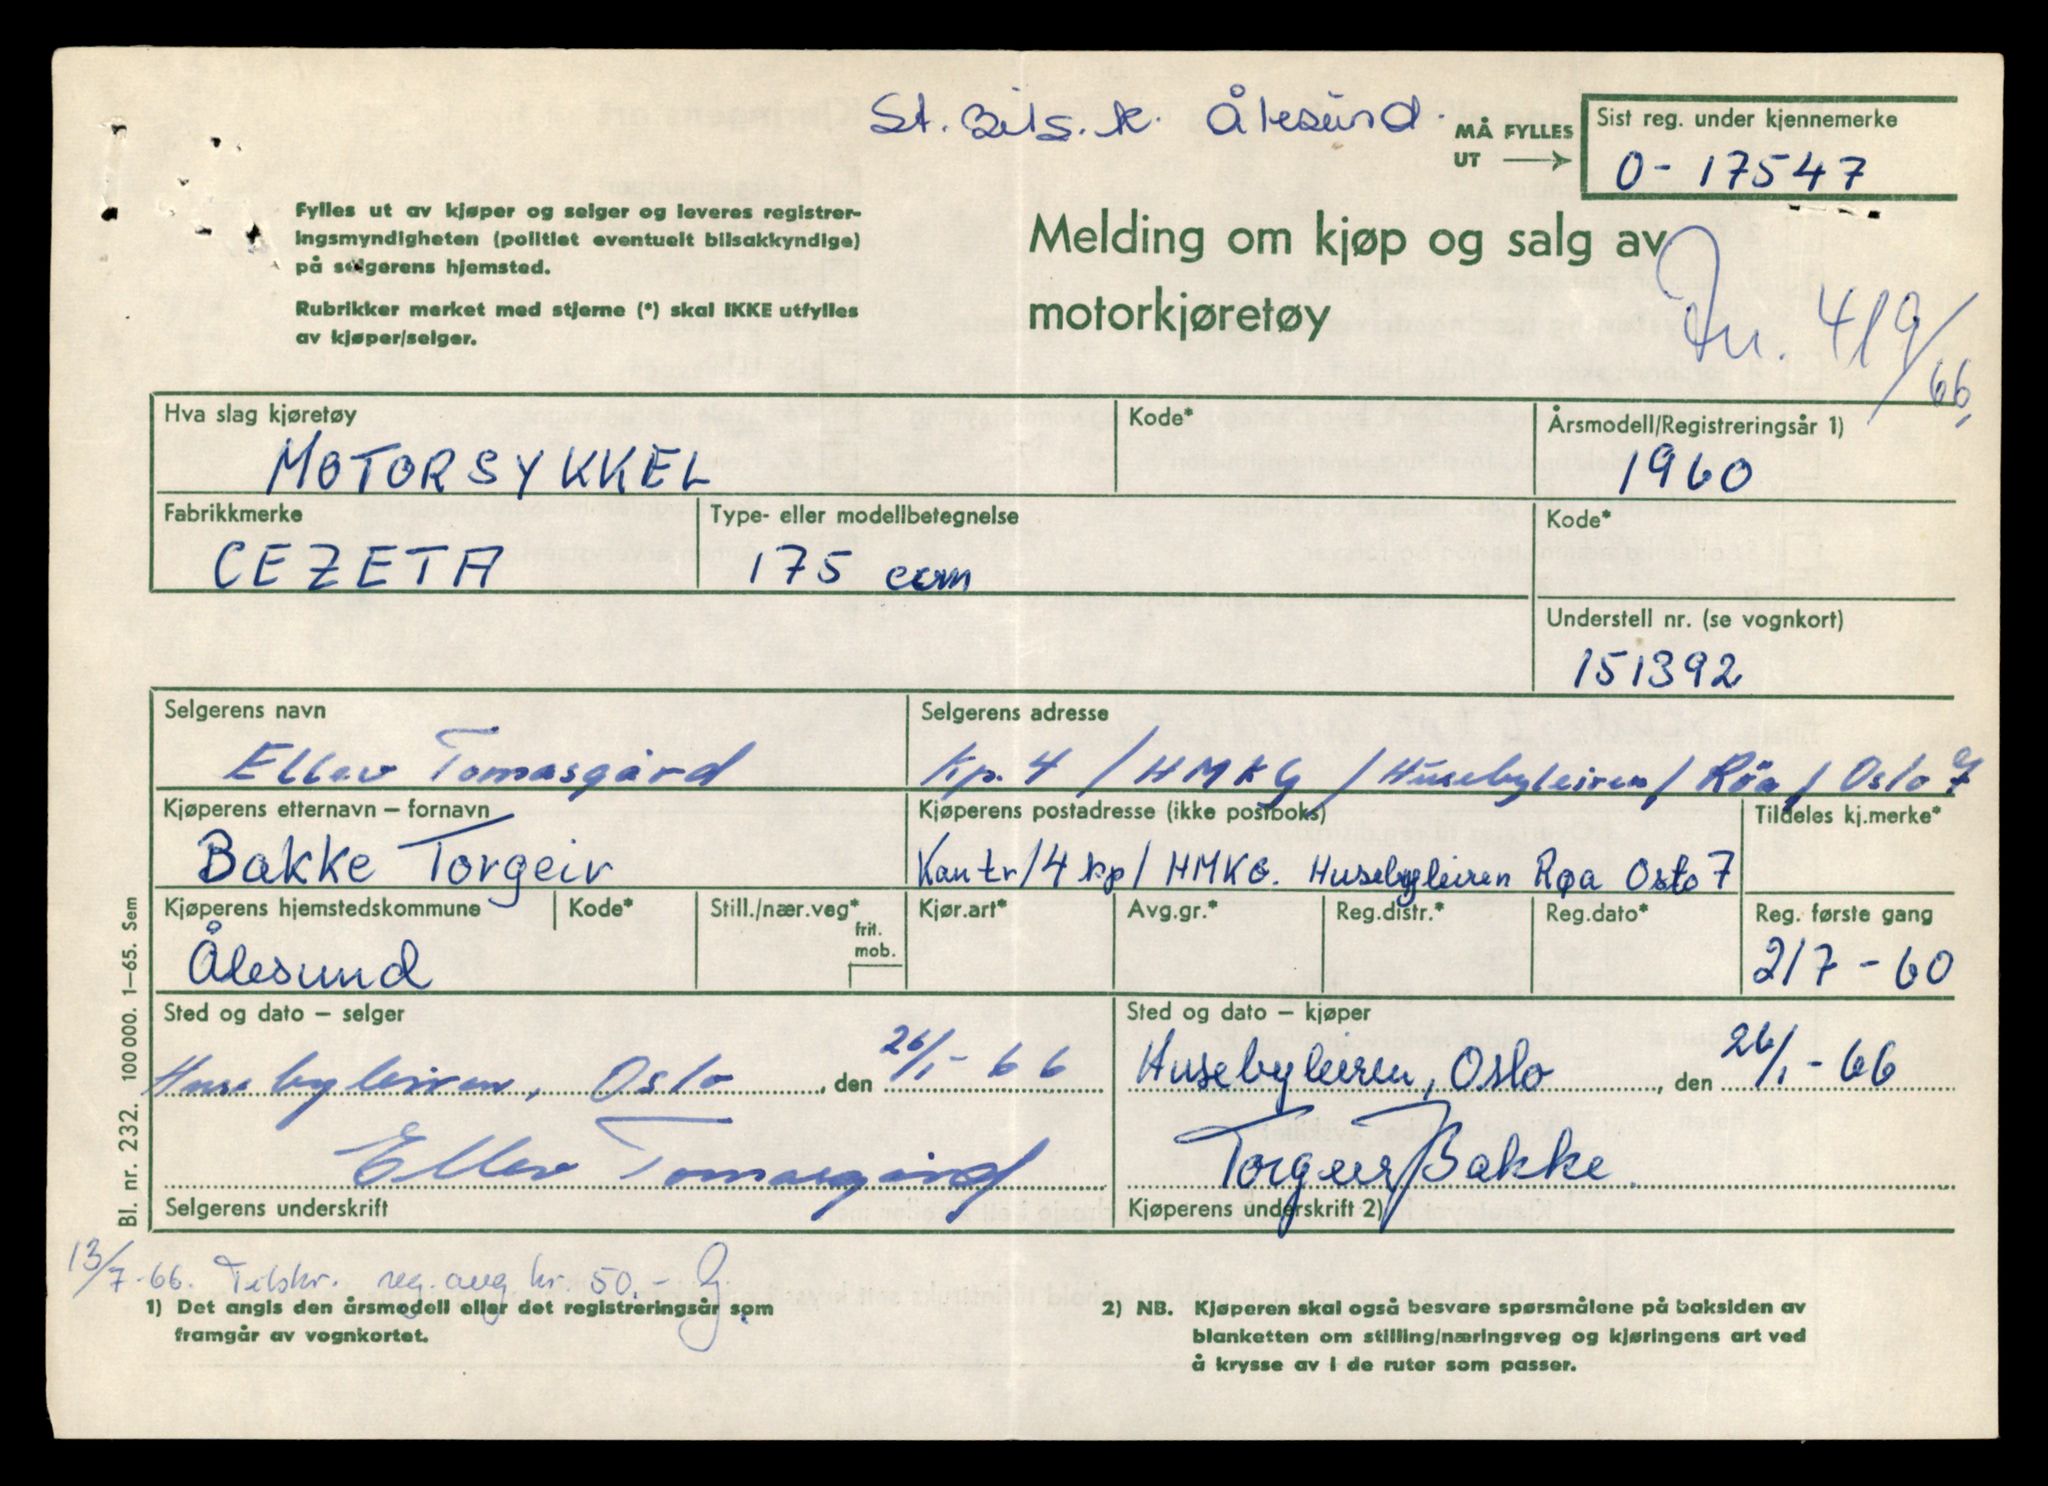 St. Bils. k. Ålesund.
MÅ FYLLES
UT
Sist reg. under kjennemerke
O-17547
Fylles ut av kjøper og selger og leveres registrer-
ingsmyndigheten (politiet eventuelt bilsakkyndige)
på selgerens hjemsted.
Rubrikker merket med stjerne (*) skal IKKE utfylles
av kjøper/selger.
Melding om kjøp og salg av
motorkjøretøy
419/66.
Hva slag kjøretøy
MOTORSYKKEL
Kode*
Årsmodell/Registreringsår 1)
1960
Fabrikkmerke
CEZETA
Type- eller modellbetegnelse
175 ccm
Kode*
Understell nr. (se vognkort)
151392
Selgerens navn
Ellev Tomasgård
Selgerens adresse
Kp. 4 / HMKG / Husebyleiren / Røa / Oslo 7
Kjøperens etternavn – fornavn
Bakke Torgeir
Kjøperens postadresse (ikke postboks)
Kantr/4 kp/ HMKG. Husebyleiren Røa Oslo 7
Tildeles kj.merke*
Kjøperens hjemstedskommune
Ålesund
Kode*
Still./nær.veg*
frit.
mob.
Kjør.art*
Avg.gr.*
Reg.distr.*
Reg.dato*
Reg. første gang
2/7-60
Sted og dato – selger
Husebyleiren, Oslo, den 26/1-66
Sted og dato – kjøper
Husebyleiren, Oslo, den 26/1-66
Ellev Tomasgård
Selgerens underskrift
Torgeir Bakke
Kjøperens underskrift 2)
Bl. nr. 232. 100 000. 1–65. Sem
13/7-66. Tilskr. reg. avg kr. 50.-
1) Det angis den årsmodell eller det registreringsår som
framgår av vognkortet.
2) NB. Kjøperen skal også besvare spørsmålene på baksiden av
blanketten om stilling/næringsveg og kjøringens art ved
å krysse av i de ruter som passer.